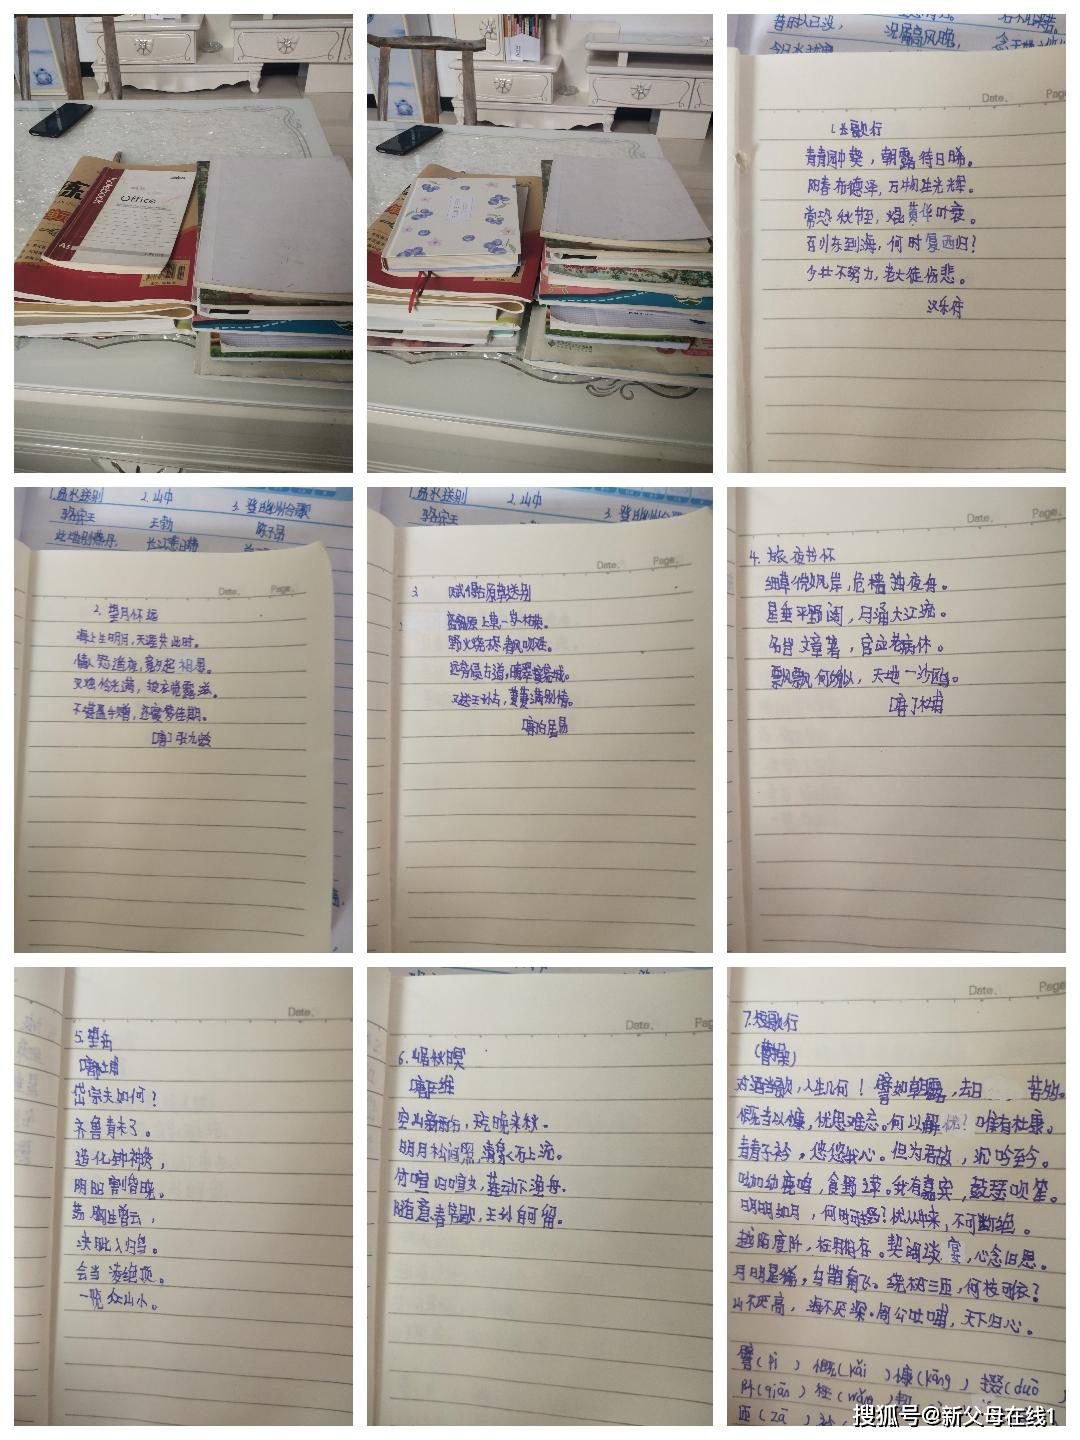 Office
A5
昔时人已没，
今日水犹寒
况属高风晚，
Date.
Page
1.长歌行
青青园中葵，朝露待日晞。
阳春布德泽，万物生光辉。
常恐秋节至，焜黄华叶衰。
百川东到海，何时复西归？
少壮不努力，老大徒伤悲。
汉乐府
1.易水送别 2.山中 3.登幽州台歌
骆宾王 王勃 陈子昂
此地别燕丹， 长江悲已滞
Date. Page.
2.望月怀远
海上生明月，天涯共此时。
情人怨遥夜，竟夕起相思。
灭烛怜光满，披衣觉露滋。
不堪盈手赠，还寝梦佳期。
[唐]张九龄
1.易水送别 2.山中 3.登幽州台歌
骆宾王 王勃
Date. Page.
3. 赋得古原草送别
离离原上草，一岁一枯荣。
野火烧不尽，春风吹又生。
远芳侵古道，晴翠接荒城。
又送王孙去，萋萋满别情。
[唐]白居易
Date. Page.
4.旅夜书怀
细草微风岸，危樯独夜舟。
星垂平野阔，月涌大江流。
名岂文章著，官应老病休。
飘飘何所似，天地一沙鸥。
[唐]杜甫
Date.
5.望岳
[唐]杜甫
岱宗夫如何？
齐鲁青未了。
造化钟神秀，
阴阳割昏晓。
荡胸生曾云，
决眦入归鸟。
会当凌绝顶。
一览众山小。
Date. Pag
6.山居秋暝
[唐]王维
空山新雨后，天气晚来秋。
明月松间照，清泉石上流。
竹喧归浣女，莲动下渔舟。
随意春芳歇，王孙自可留。
Date. Page
7.短歌行
(曹操)
对酒当歌，人生几何！譬如朝露，去日 苦多。
慨当以慷，忧思难忘。何以解忧？唯有杜康。
青青子衿，悠悠我心。但为君故，沉吟至今。
呦呦幼鹿鸣，食野之苹。我有嘉宾，鼓瑟吹笙。
明明如月，何时可掇？忧从中来，不可断绝。
越陌度阡，枉用相存。契阔谈宴，心念旧恩。
月明星稀，乌鹊南飞。绕树三匝，何枝可依？
山不厌高，海不厌深。周公吐哺，天下归心。
譬(pì ) 慨(kǎi ) 慷(kāng ) 掇(duō )
阡(qiān ) 枉(wǎng )
匝(zā )
搜狐号@新父母在线1